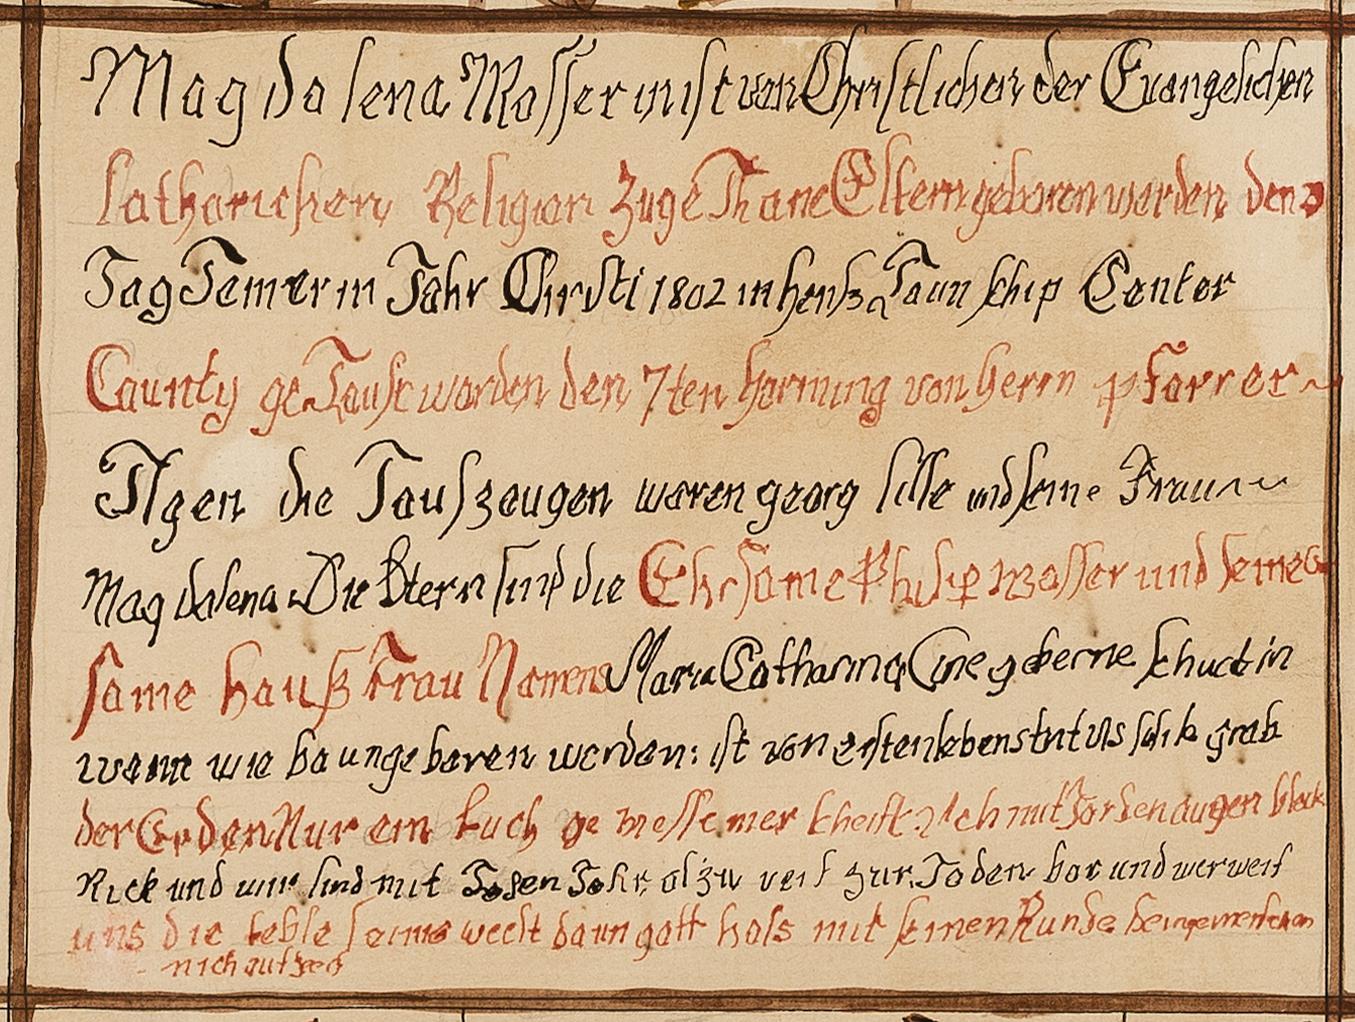 Magdalena Mosserin ist von Christlichen der Evangelischen
Lutharichen Religion zuge Thane Eltern geboren worden den
Tag Jenner in Jahr Christi 1802 in Taunschip Center
Caunty geTauft worden den 7ten Hornung von Herrn pfarrer
Ilgen die Taufzeugen waren georg und seine Frau
Magdalena Die Eltern sind die EhrSame Philip Mosser und seine
same hauß Frau Namens Maria Catharina Eine geberne Schuckin
wann wie kaum geboren werden: ist von ersten lebenstrit bis grab
der Erden Nur ein kuch ge messener Ach mit Jorden augenblick
Rick und wir sind mit Jeden Johr, alzu reif zur Toden bar und wer weis
uns die letzte weckt dann gott hals mit seinen Runde
nich auf